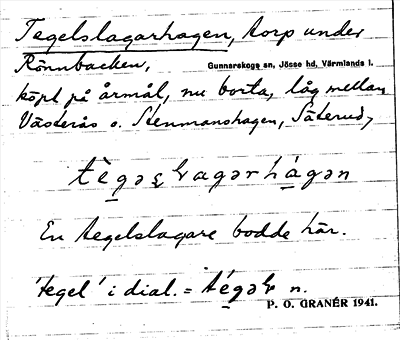 Tegelslagarhagen, torp under
Rönnbacken, Gunnarskogs sn, Jösse hd, Värmlands l.
köpt på årmål, nu borta, låg mellan
Västerås o. Stenmanshagen, Säterud,
En tegelslagare bodde här.
'tegel' i dial. = n.
P. O. GRANÉR 1941.